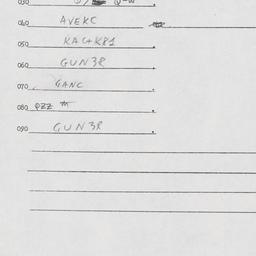 030
040 AVEKC
050 KACHK81
060 GUN3R
070 GANC
080 PZZ
090 GUN3R